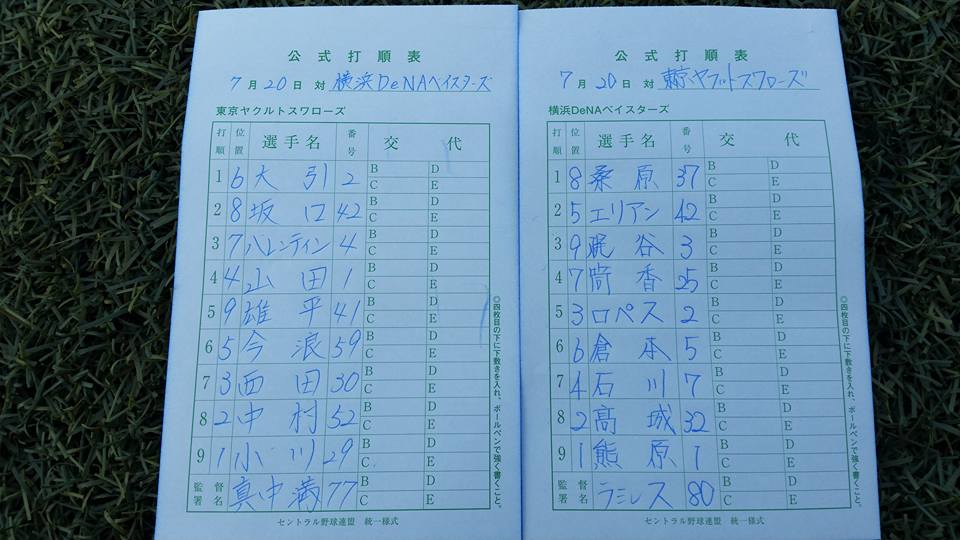 公式打順表
7月20日 対 横浜DeNAベイスターズ
東京ヤクルトスワローズ
打順 位置 選手名 番号 交代
1 6 大引 2 B D C E
2 8 坂口 42 B D C E
3 7 バレンティン 4 B D C E
4 4 山田 1 B D C E
5 9 雄平 41 B D C E
6 5 今浪 59 B D C E
7 3 西田 30 B D C E
8 2 中村 52 B D C E
9 1 小川 29 B D C E
監督署名 真中満 77 B D C E
セントラル野球連盟 統一様式
◎四枚目の下に下敷きを入れ、ボールペンで強く書くこと。
公式打順表
7月20日 対 東京ヤクルトスワローズ
横浜DeNAベイスターズ
打順 位置 選手名 番号 交代
1 8 桑原 37 B D C E
2 5 エリアン 42 B D C E
3 9 梶谷 3 B D C E
4 7 筒香 25 B D C E
5 3 ロペス 2 B D C E
6 6 倉本 5 B D C E
7 4 石川 7 B D C E
8 2 高城 32 B D C E
9 1 熊原 1 B D C E
監督署名 ラミレス 80 B D C E
セントラル野球連盟 統一様式
◎四枚目の下に下敷きを入れ、ボールペンで強く書くこと。